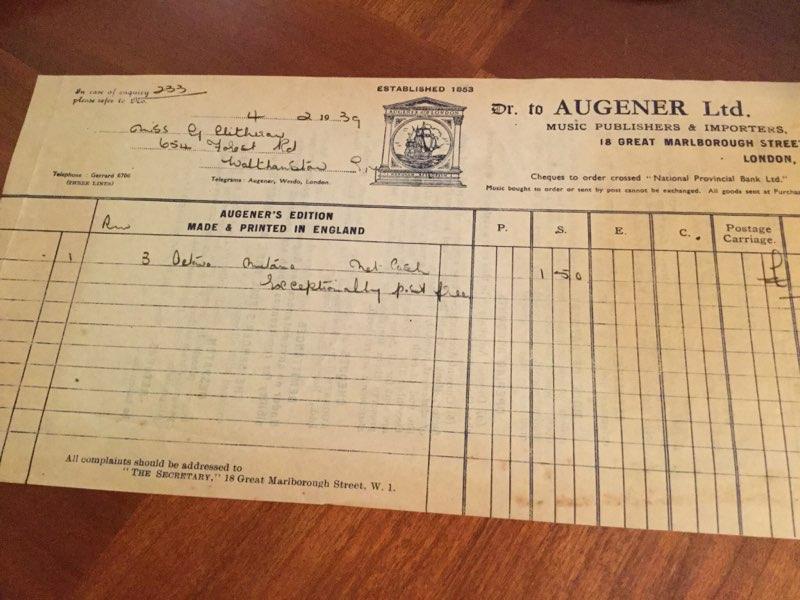 In case of enquiry 233
please refer to No.
4 2 10 39
Miss G
654 Forest Rd
Walthamstow
Telephone : Gerrard 6706
(THREE LINES)
Telegrams : Augener, Wesdo, London.
ESTABLISHED 1853
AUGENER LONDON
Dr. to AUGENER Ltd.
MUSIC PUBLISHERS & IMPORTERS,
18 GREAT MARLBOROUGH STREET
LONDON,
Cheques to order crossed "National Provincial Bank Ltd."
Music bought to order or sent by post cannot be exchanged. All goods sent at Purchas
AUGENER'S EDITION
MADE & PRINTED IN ENGLAND
P. S. E. C. Postage
Carriage.
1 3 Octavo Net Cash 1 5 0
Exceptionally post free
All complaints should be addressed to
"THE SECRETARY," 18 Great Marlborough Street, W. 1.